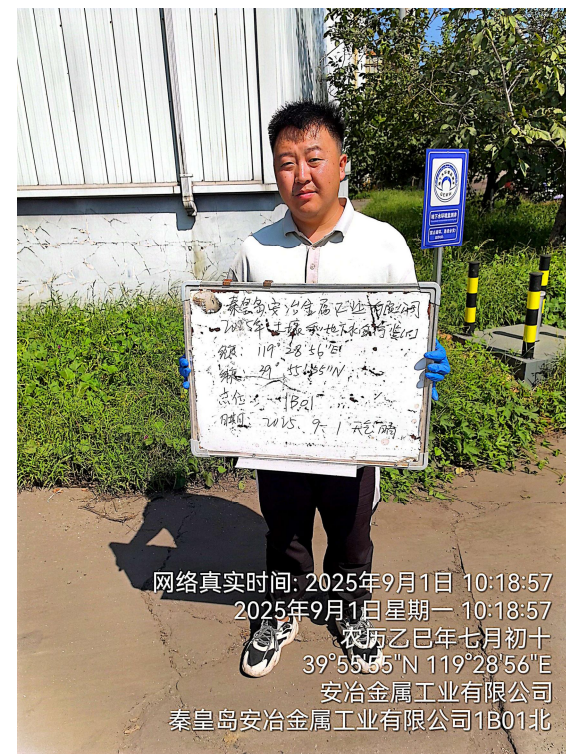 秦皇岛安冶金属工业有限公司
2025年土壤和地下水自行监测
经度: 119°28′56″E
纬度: 39°55′55″N
点位: 1B01
日期: 2025.9.1 天气 晴
网络真实时间: 2025年9月1日 10:18:57
2025年9月1日星期一 10:18:57
农历乙巳年七月初十
39°55'55"N 119°28'56"E
安冶金属工业有限公司
秦皇岛安冶金属工业有限公司1B01北